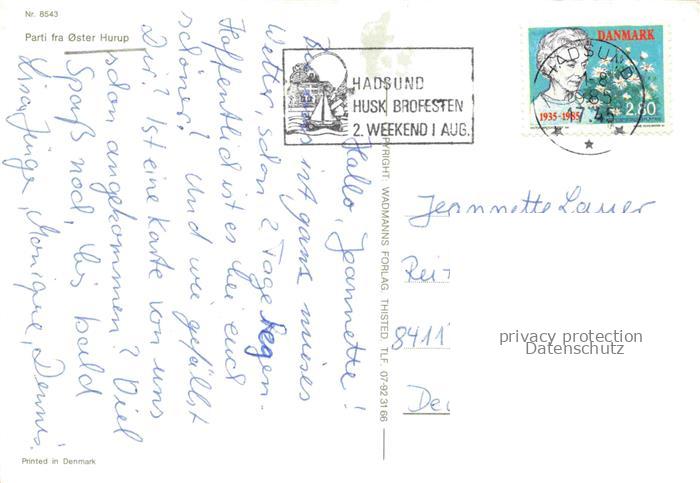 Nr. 8543
Parti fra Øster Hurup
HADSUND
HUSK BROFESTEN
2. WEEKEND I AUG.
DANMARK
1935-1985
2.80
HADSUND
1985
17.45
Hallo, Jeannette!
ist ganz mieses
Wetter, schon 2 Tage Regen.
Hoffentlich ist es bei euch
schöner! Und wie gefällst
Dir? Ist eine Karte von uns
schon angekommen? Viel
Spaß noch, bis bald
Monique, Dennis.
COPYRIGHT: WADMANNS FORLAG. THISTED. TLF. 07-92 31 66
Jeannette Lauer
8411
privacy protection
Datenschutz
Printed in Denmark